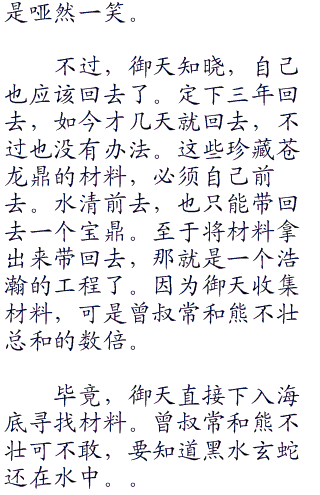 是哑然一笑。
不过，御天知晓，自己
也应该回去了。定下三年回
去，如今才几天就回去，不
过也没有办法。这些珍藏苍
龙鼎的材料，必须自己前
去。水清前去，也只能带回
去一个宝鼎。至于将材料拿
出来带回去，那就是一个浩
瀚的工程了。因为御天收集
材料，可是曾叔常和熊不壮
总和的数倍。
毕竟，御天直接下入海
底寻找材料。曾叔常和熊不
壮可不敢，要知道黑水玄蛇
还在水中。。